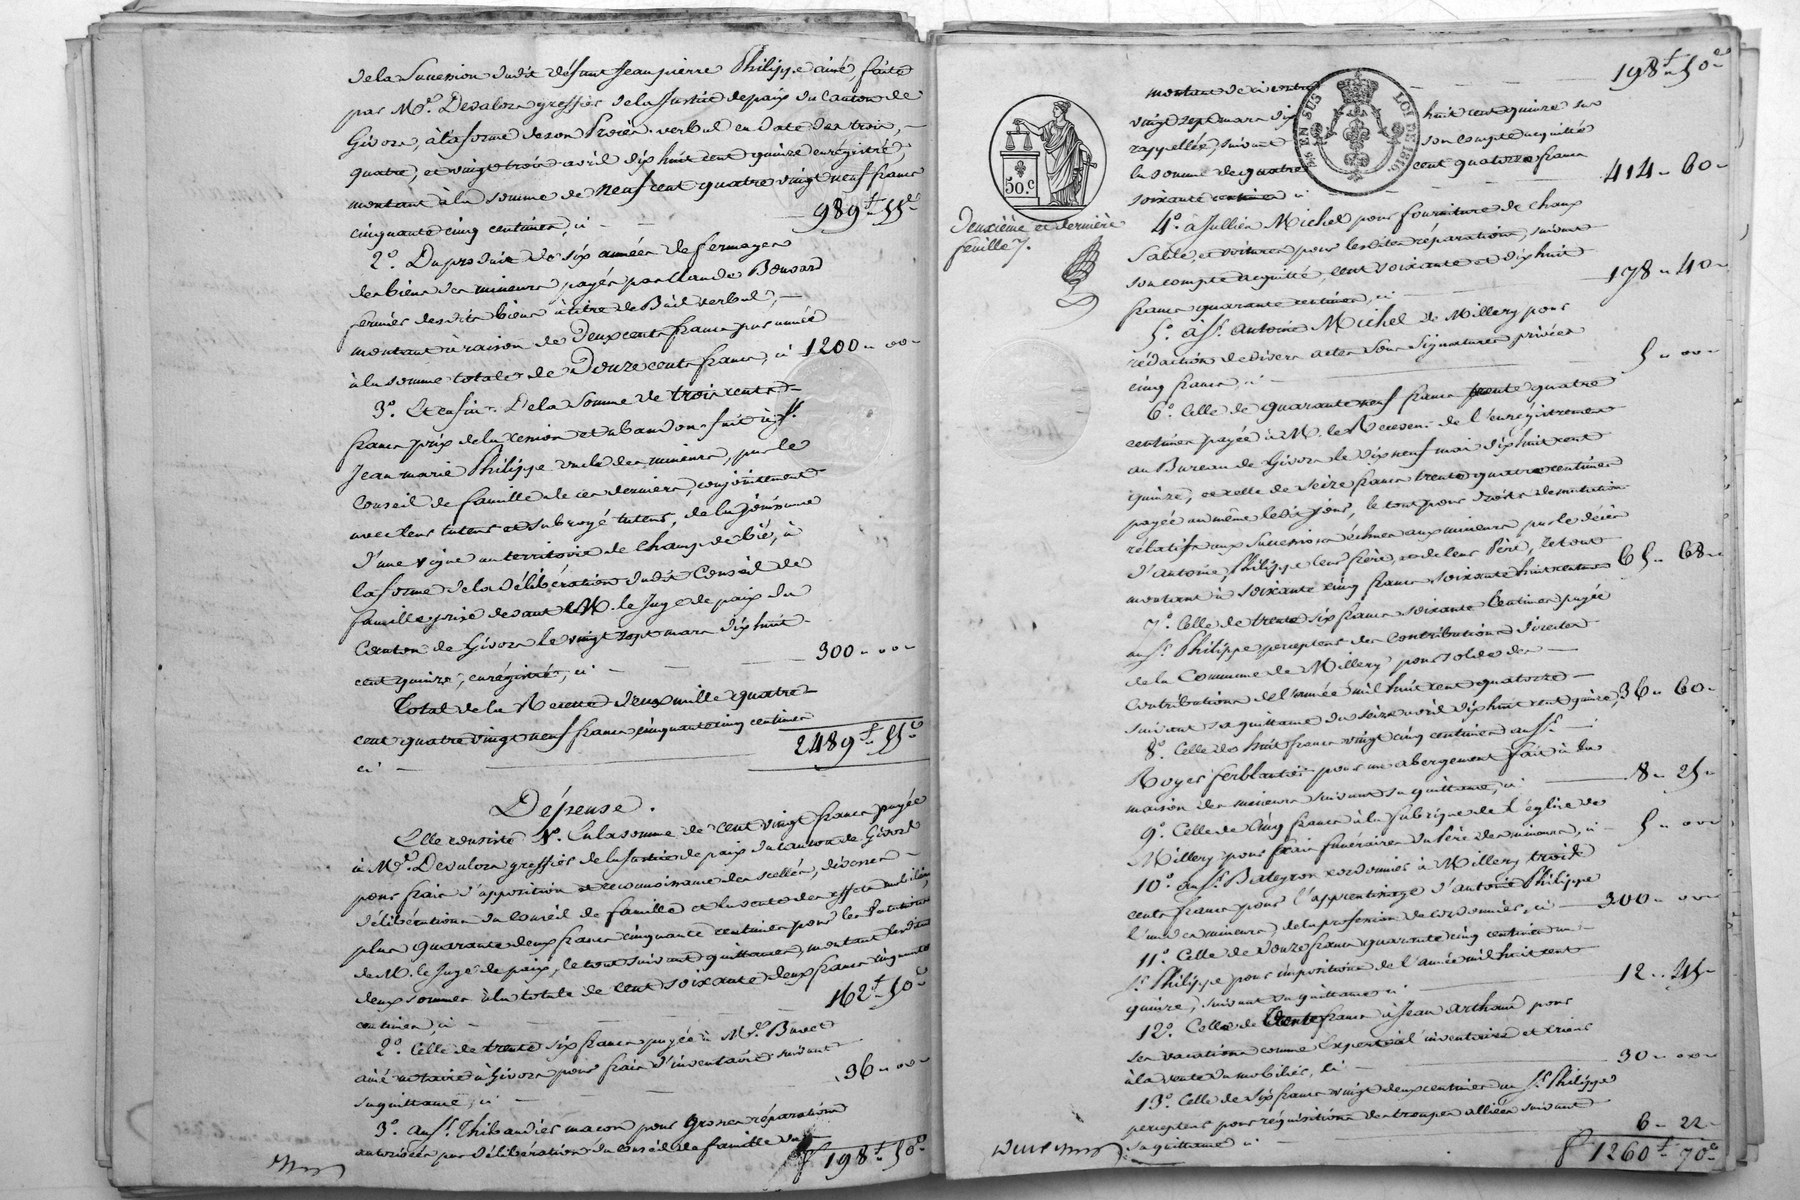 de la Succession dudit défunt Jean pierre Philippe ainé, faite
par Me. Devalors greffier de la Justice de paix du Canton de
Givors, à la forme de son Procès-verbal en date des trois,
quatre, et vingt trois avril dix huit cent quinze enrégistré,
montant à la somme de neuf cent quatre vingt neuf francs
cinquante cinq centimes, ci - 989f.. 55c
2o. Du produit de six années de fermages
des biens des mineurs, payés par Claude Bonnard
fermier desdits biens à titre de Bail verbal,
montant à raison de Deux cents francs par année
à la somme totale de Douze cents francs, ci 1200 .. 00
3o. Et enfin. De la Somme de trois cents
francs prix de la cession et abandon fait à Sr.
Jean marie Philippe oncle des mineurs, par le
Conseil de famille de ces derniers, conjointement
avec leur tuteur et subrogé tuteur, de la jouissance
d'une vigne au territoire de Champ-de-blé, à
la forme de la délibération dudit Conseil de
famille prise devant M. le Juge de paix du
Canton de Givors le vingt sept mars dix huit
cent quinze, enrégistré, ci - 300 .. 00
Total de la Recette deux mille quatre
cent quatre vingt neuf francs cinquante cinq centimes
ci - 2489f.. 55c
Dépense.
Elle consiste 1o. En la somme de cent vingt francs payée
à Me. Devalors greffier de la Justice de paix du canton de Givors
pour frais d'apposition et reconnoissance des scellés, diverses
délibérations du Conseil de famille et la vente des effets mobiliers,
plus quarante deux francs cinquante centimes pour les vacations
de M. le Juge de paix, le tout suivant quittances, montant les dites
deux sommes à la totale de cent soixante deux francs cinquante
centimes, ci - 162f. 50c
2o. Celle de trente six francs payée à Me. Buret
ainé notaire à Givors pour frais d'inventaire suivant
sa quittance, ci - 36 .. 00
3o. au Sr. Thibaudier macon pour grosses réparations
autorisées par délibération du Conseil de famille du
198f.. 50c
198f.. 50c
montant de ci contre
vingt sept mars dix huit cent quinze sus
rappellée, suivant son compte acquitté
la somme de quatre cent quatorze francs
soixante centimes ci - 414 .. 60
EN SUS
LOI DE 1816.
50.c
Deuxième et dernière
feuille
4o. à Jullien Michel pour fourniture de chaux
Sable, et voitures pour lesdites réparations, suivant
son compte acquitté, cent soixante et dix huit
francs quarante centimes, ci - 178 .. 40
5o. à Sr. antoine Michel de Millery pour
rédaction de divers actes sous Signatures privées
cinq francs ci - 5 .. 00
6o. Celle de quarante neuf francs trente quatre
centimes payée à M. le Receveur de l'enrégistrement
au Bureau de Givors le dix neuf mai dix huit cent
quinze, et celle de seize francs trente quatre centimes
payée au même ledit jour, le tout pour droits de mutation
relatifs aux Successions échues aux mineurs par le décès
d'antoine Philippe leur frère, et de leur Père, le tout
montant à soixante cinq francs soixante huit centimes 65 .. 68
7o. Celle de trente six francs soixante Centimes payée
au Sr. Philippe percepteur des Contributions directes
de la Commune de Millery pour solde des
Contributions de l'année mil huit cent quatorze
suivant sa quittance du seize avril dix huit cent quinze, 36 .. 60
8o. Celle de huit francs vingt cinq centimes au Sr.
Royer ferblantier pour un abergement fait à la
maison des mineurs suivant sa quittance, ci 8 .. 25
9o. Celle de Cinq francs à la fabrique de l'église de
Millery pour frais funéraires du Père des mineurs, ci - 5 .. 00
10o. au Sr. Bateyron cordonnier à Millery trois
cents francs pour l'apprentissage d'antoine Philippe
l'un des mineurs, de la profession de cordonnier, ci - 300 .. 00
11o. Celle de Douze francs quarante cinq centimes au
Sr. Philippe pour impositions de l'année mil huit cent
quinze, suivant sa quittance ci - 12 .. 45
12o. Celle de trente francs à Jean arthaud pour
ses vacations comme Expert à l'inventaire et
à la vente du mobilier, ci - 30 .. 00
13o. Celle de six francs vingt deux centimes au Sr. Philippe
percepteur pour réquisitions des troupes alliées suivant
sa quittance ci - 6 .. 22
1260f.. 70c